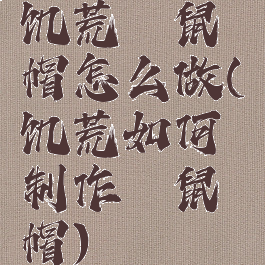 饥荒 鼠
帽怎么做(
饥荒如何
制作 鼠
帽)